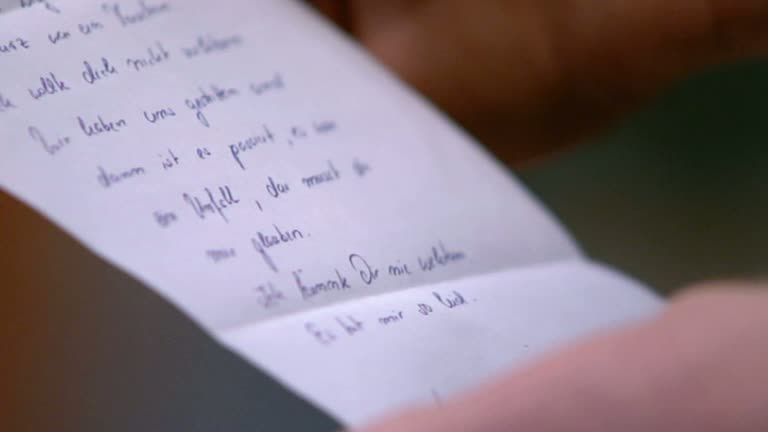 von ein
wollte dich nicht verletzen
Wir haben uns gestritten und
dann ist es passiert, es war
ein Unfall, das musst du
mir glauben.
Ich könnte Dir nie wehtun
Es tut mir so leid.